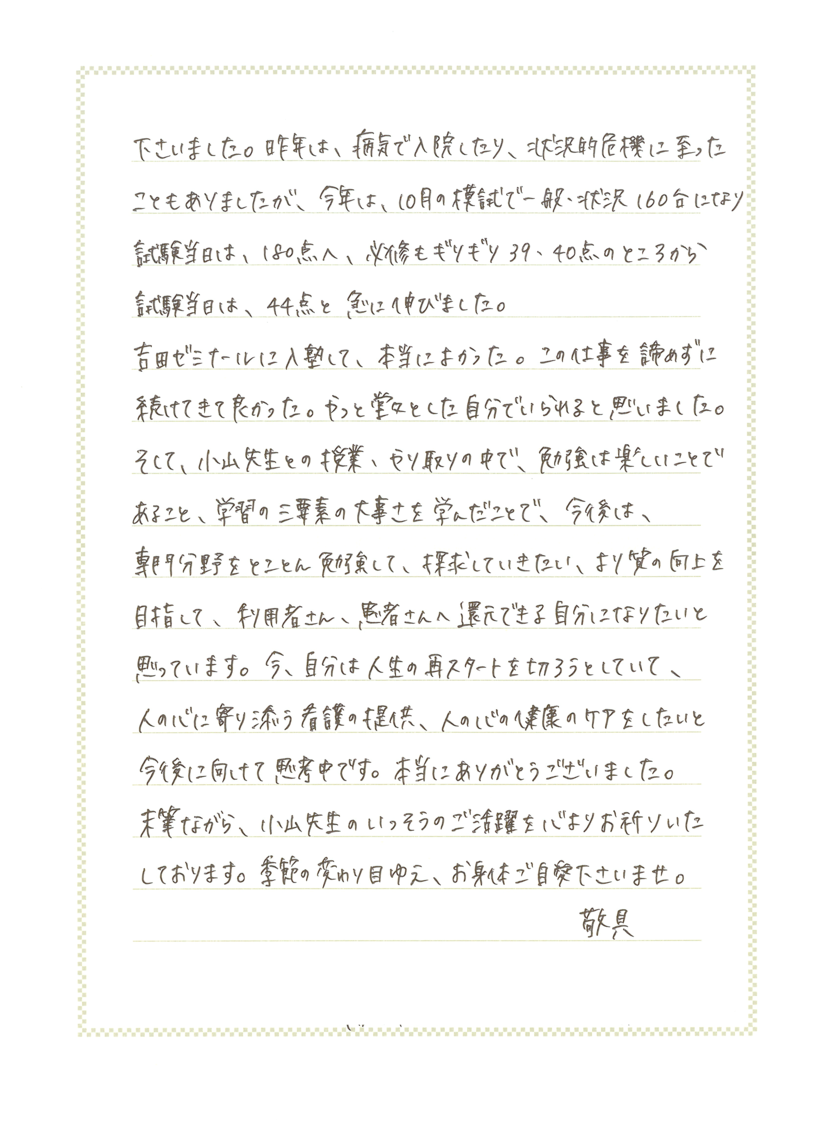 下さいました。昨年は、病気で入院したり、状況的危機に至った
こともありましたが、今年は、10月の模試で一般・状況160台になり
試験当日は、180点へ、必修もぎりぎり39、40点のところから
試験当日は、44点と急に伸びました。
吉田ゼミナールに入塾して、本当によかった。この仕事を諦めずに
続けてきて良かった。やっと堂々とした自分でいられると思いました。
そして、小山先生との授業、やり取りの中で、勉強は楽しいことで
あること、学習の三要素の大事さを学んだことで、今後は、
専門分野をとことん勉強して、探求していきたい、より質の向上を
目指して、利用者さん、患者さんへ還元できる自分になりたいと
思っています。今、自分は人生の再スタートを切ろうとしていて、
人の心に寄り添う看護の提供、人の心の健康のケアをしたいと
今後に向けて思考中です。本当にありがとうございました。
末筆ながら、小山先生のいっそうのご活躍を心よりお祈りいた
しております。季節の変わり目ゆえ、お身体ご自愛下さいませ。
敬具